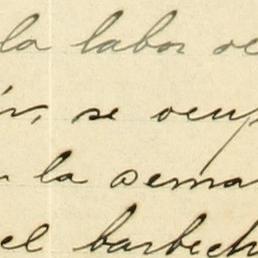 la labor de
se ocup
la sema
el barbech